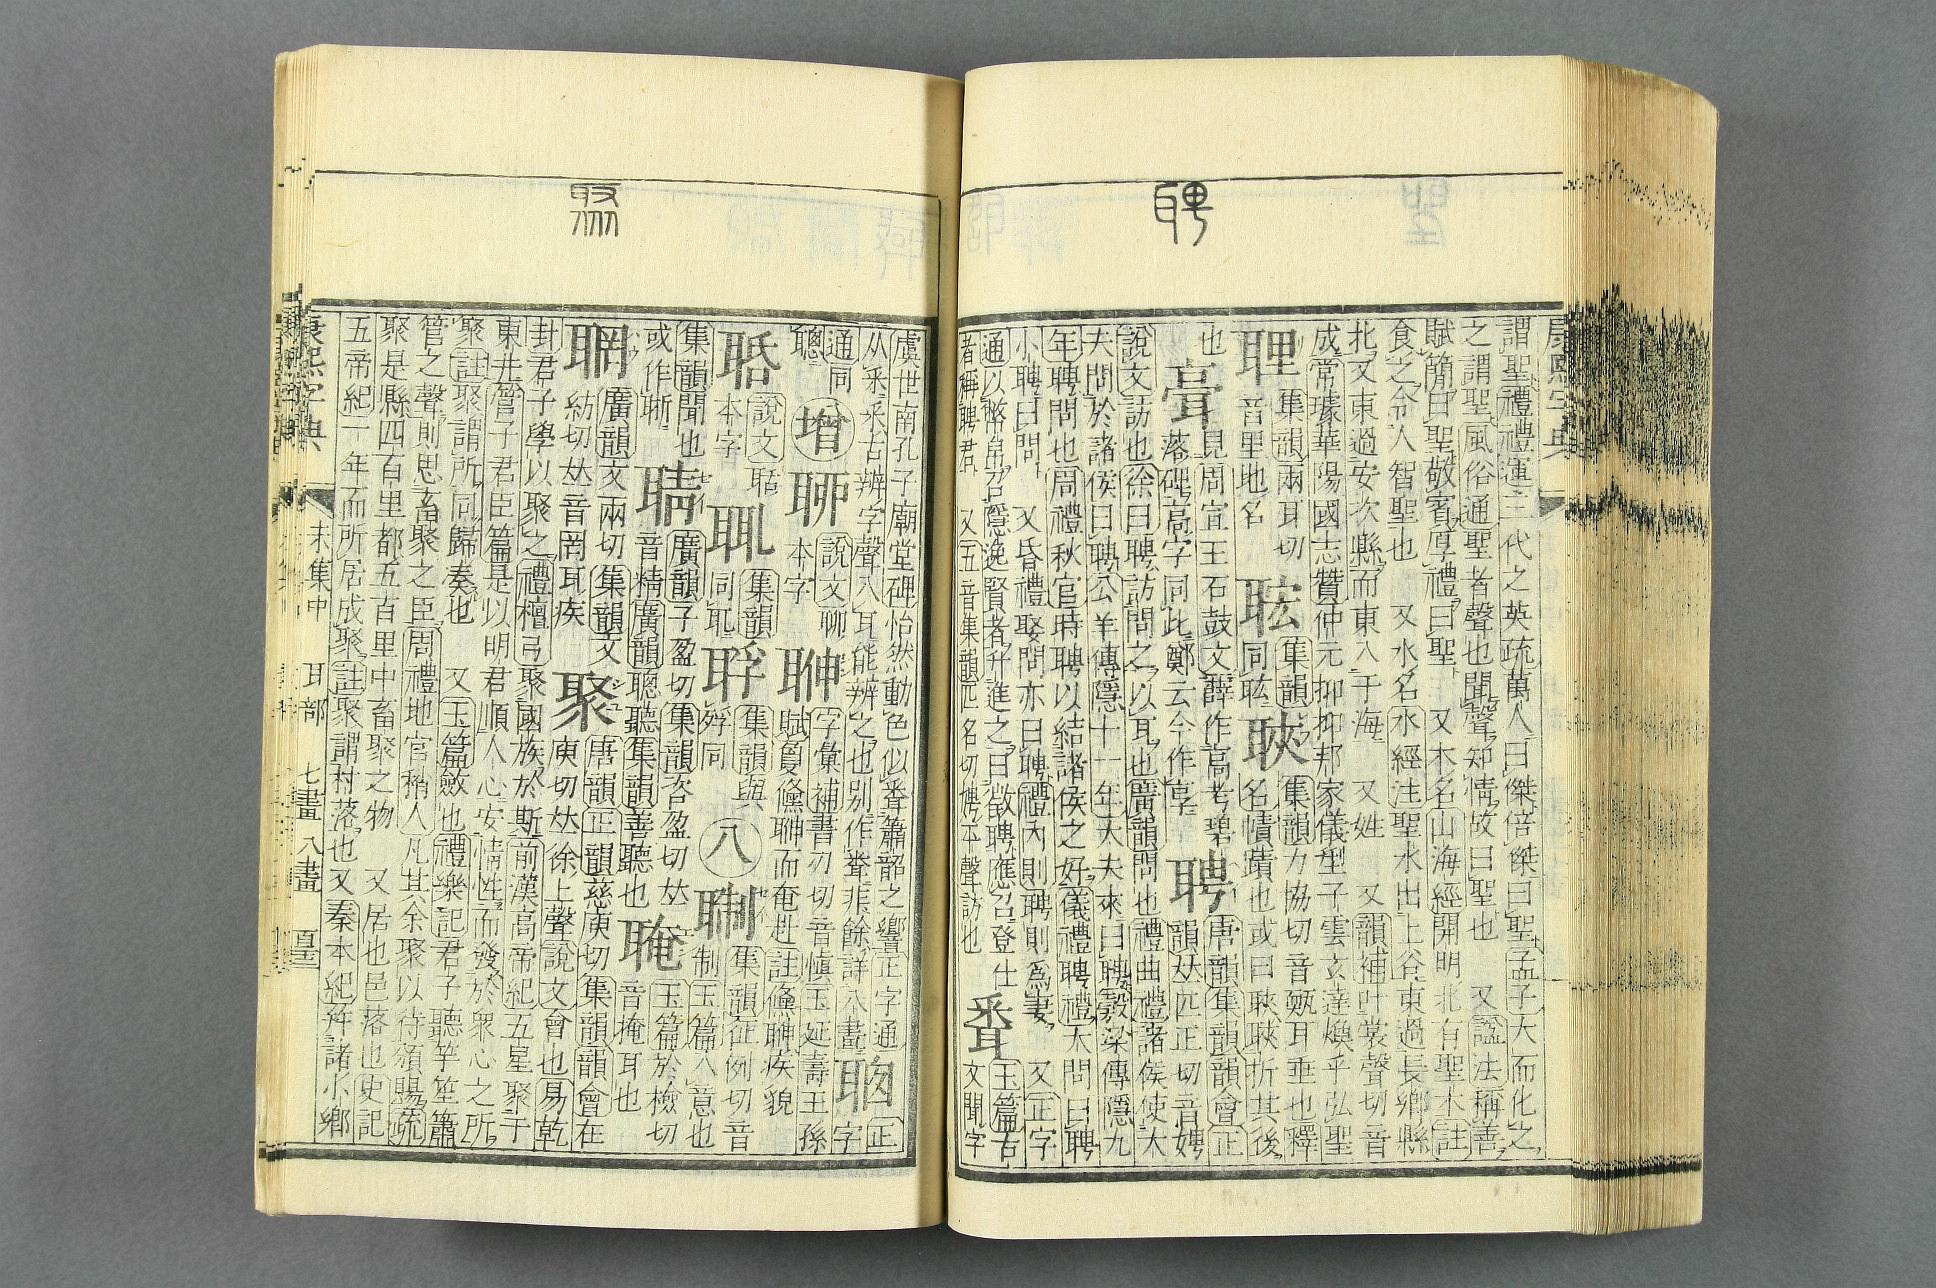 聘
謂聖禮禮運三代之英疏萬人曰傑倍傑曰聖孟子大而化之
之謂聖風俗通聖者聲也聞聲知情故曰聖也 又諡法稱善
賦簡曰聖敬賓厚禮曰聖 又木名山海經開明北有聖木註
食之令人智聖也 又水名水經注聖水出上谷東過長鄉縣
北又東過安次縣而東入于海 又姓 又韻補叶裳聲切音
成常璩華陽國志贊仲元抑抑邦家儀型子雲玄達煥乎弘聖
聖 集韻兩耳切音里地名 聡 集韻同聡 聗 集韻力協切音甄耳垂也釋名幘蹟也或曰聗聗折其後
也 見周宣王石鼓文薛作高考碧落碑高字同此鄭云今作亭
聘 唐韻集韻韻會正韻𠀤匹正切音娉
說文訪也徐曰聘訪問之以耳也廣韻問也禮曲禮諸侯使大
夫問於諸侯曰聘公羊傳隱十一年大夫來曰聘穀梁傳隱九
年聘問也周禮秋官時聘以結諸侯之好儀禮聘禮大問曰聘
小聘曰問 又昏禮娶問亦曰聘禮內則聘則為妻 又正字
通以幣帛召隱逸賢者升進之曰徵聘應召登仕者稱聘君 又五音集韻匹名切娉平聲訪也
玉篇古文聞字
虞世南孔子廟堂碑怡然動色似䎽簫韶之響正字通
从釆釆古辨字聲入耳能辨之也別作䎽非餘詳本畫
正字通同聰
增
說文聊本字
字彙補書刃切音慎王延壽王孫賦負儵䎶而奄赴註儵䎶疾貌
說文聒本字
集韻同耴
集韻與聠同
八
集韻征例切音制玉篇入意也
集韻聞也或作聍
廣韻子盈切集韻咨盈切𠀤音精廣韻聰聽集韻善聽也
玉篇於檢切音掩耳也
廣韻文兩切集韻文紡切𠀤音罔耳疾
聚
唐韻正韻慈庾切集韻韻會在庾切𠀤徐上聲說文會也易乾
封君子學以聚之禮檀弓聚國族於斯前漢高帝紀五星聚于
東井管子君臣篇是以明君順人心安情性而發於眾心之所
聚註聚謂所同歸湊也 又玉篇斂也禮樂記君子聽竽笙簫
管之聲則思畜聚之臣周禮地官稍人凡其余聚以待頒賜疏
聚是縣四百里都五百里中畜聚之物 又居也邑落也史記
五帝紀一年而所居成聚註聚謂村落也又秦本紀幷諸小鄉
康熙字典 未集中 耳部 七畫 八畫